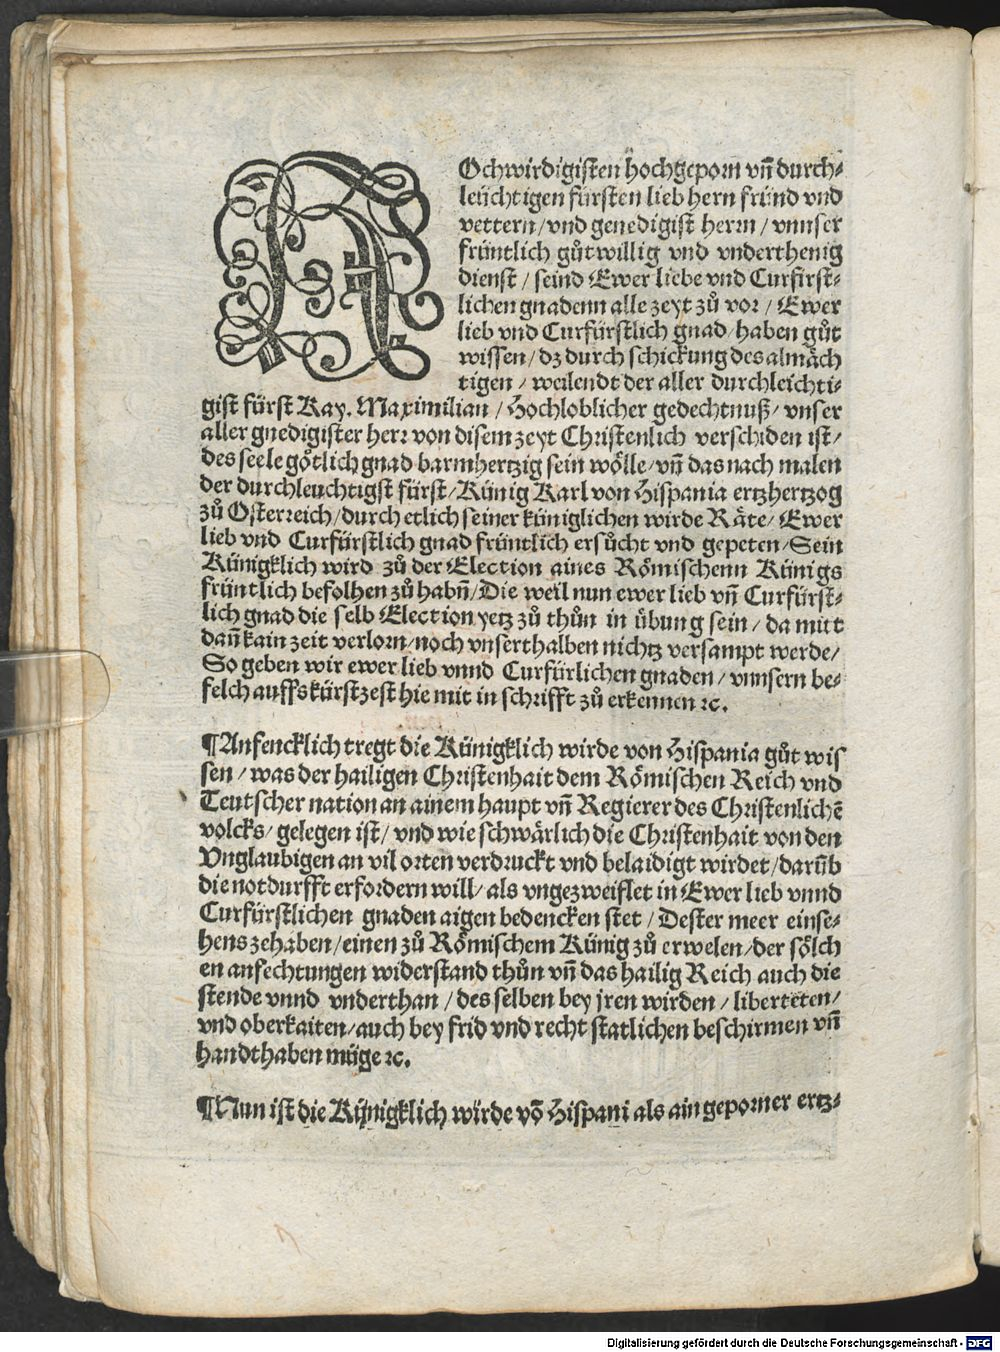 HOchwirdigisten hochgeporn vnd̄ durch⸗
leüchtigen fürsten lieb hern fründ vnd
vettern/vnd genedigist herrn/vnnser
früntlich gůtwillig vnd vnderthenig
dienst/seind Ewer liebe vnd Curfirst⸗
lichen gnadenn alle zeyt zů vor/Ewer
lieb vnd Curfürstlich gnad/haben gůt
wissen/dz durch schickung des almåch
tigen/weilendt der aller durchleichti⸗
gist fürst Kay. Maximilian/Hochloblicher gedechtnuß/vnser
aller gnedigister herr von disem zeyt Christenlich verschiden ist/
des seele götlich gnad barmhertzig sein wölle/vn̄ das nach malen
der durchleuchtigst fürst/Künig Karl von Hispania ertzhertzog
zů Osterreich/durch etlich seiner küniglichen wirde Räte/Ewer
lieb vnd Curfürstlich gnad früntlich ersůcht vnd gepeten/Sein
Künigklich wird zů der Election aines Römischenn Künigs
früntlich befolhen zů habn̄/Die weil nun ewer lieb vn̄ Curfürst⸗
lich gnad die selb Election yetz zů thůn in übung sein/da mitt
dan̄ kain zeit verlorn/noch vnserthalben nichtz versampt werde/
So geben wir ewer lieb vnnd Curfürlichen gnaden/vnnsern be⸗
felch auffs kürstzest hie mit in schrifft zů erkennen ⁊c.
¶Anfencklich tregt die Künigklich wirde von Hispania gůt wis
sen/was der hailigen Christenhait dem Römischen Reich vnd
Teutscher nation an ainem haupt vn̄ Regierer des Christenlichē
volcks/gelegen ist/vnd wie schwärlich die Christenhait von den
Vnglaubigen an vil orten verdruckt vnd belaidigt wirdet/darūb
die notdurfft erfordern will/als vngezweiflet in Ewer lieb vnnd
Curfürstlichen gnaden aigen bedencken stet/Dester meer einse⸗
hens zehaben/einen zů Römischem Künig zů erwelen/der sölch
en anfechtungen widerstand thůn vn̄ das hailig Reich auch die
stende vnnd vnderthan/des selben bey jren wirden/liberteten/
vnd oberkaiten/auch bey frid vnd recht statlichen beschirmen vn̄
handthaben müge ⁊c.
¶Nun ist die Künigklich wirde vō Hispani als ain geporner ertz⸗
Digitalisierung gefördert durch die Deutsche Forschungsgemeinschaft - DFG